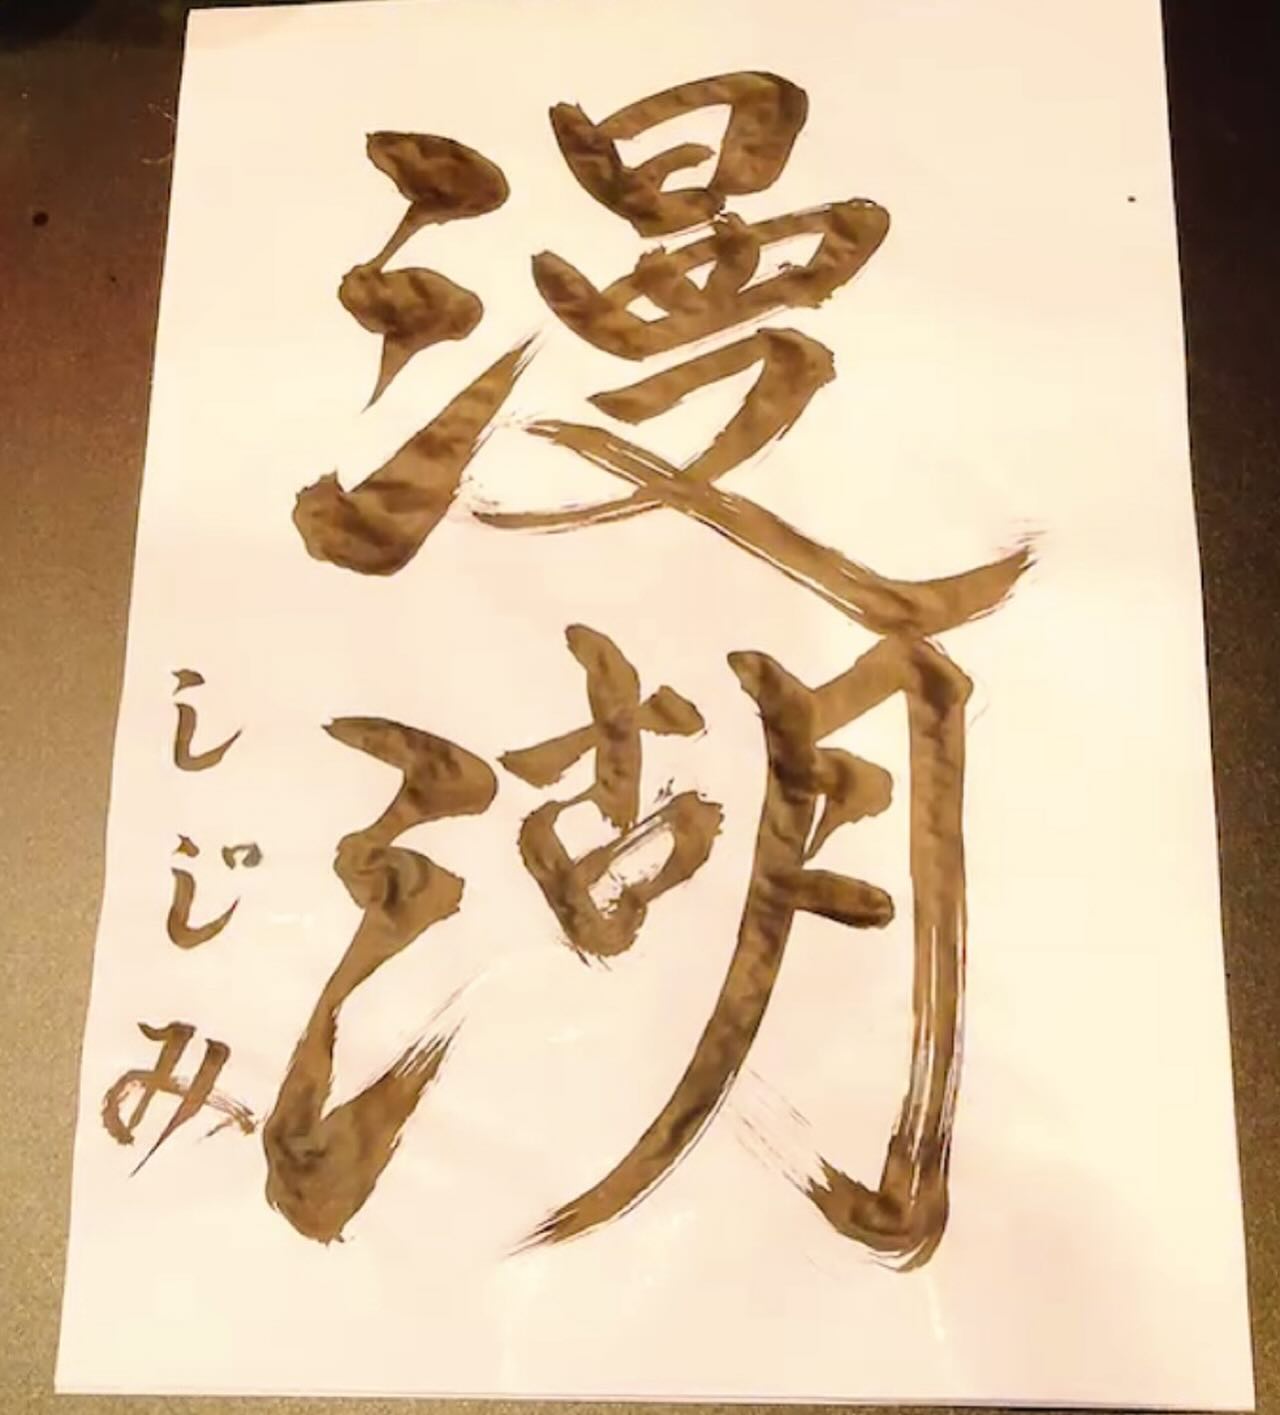 漫湖
しじみ